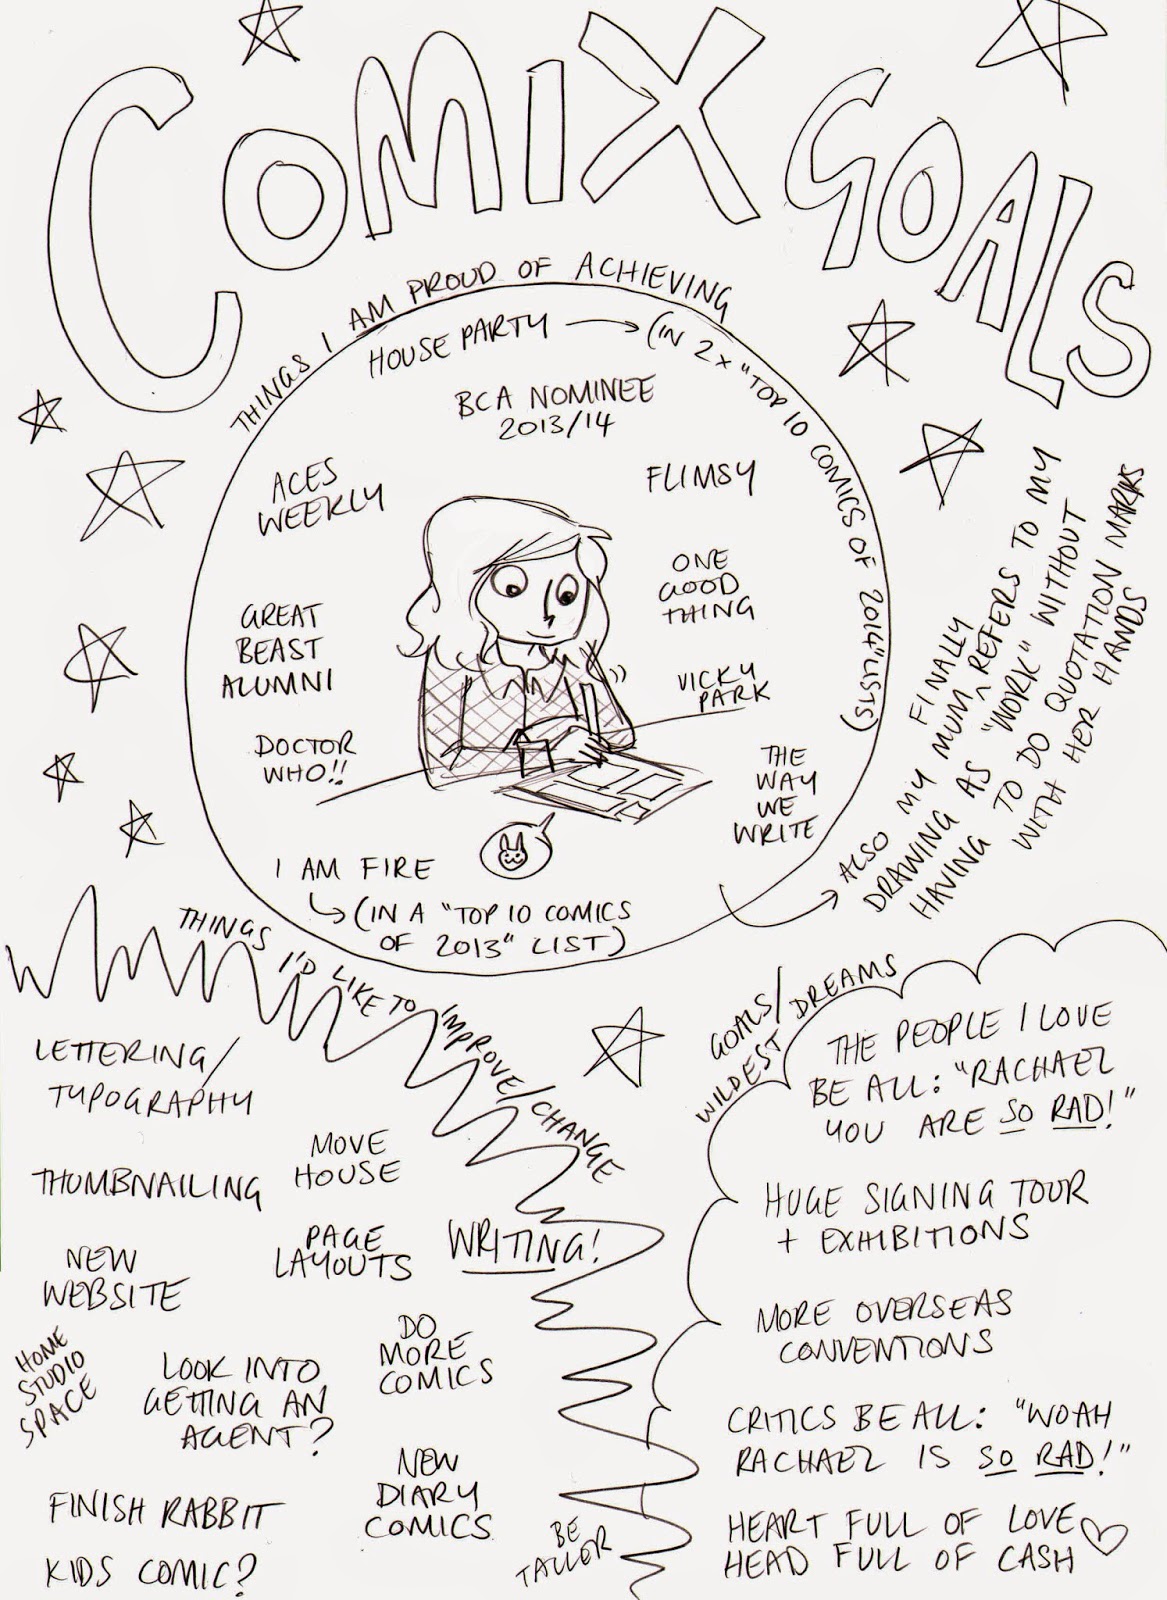 COMIX GOALS
THINGS I AM PROUD OF ACHIEVING
HOUSE PARTY → (IN 2x "TOP 10 COMICS OF 2014" LISTS)
BCA NOMINEE
2013/14
ACES
WEEKLY
FLIMSY
ONE
GOOD
THING
GREAT
BEAST
ALUMNI
VICKY
PARK
DOCTOR
WHO!!
THE
WAY
WE
WRITE
I AM FIRE
(IN A "TOP 10 COMICS
OF 2013" LIST)
ALSO MY MUM FINALLY REFERS TO MY
DRAWING AS "WORK" WITHOUT
HAVING TO DO QUOTATION MARKS
WITH HER HANDS
THINGS I'D LIKE TO IMPROVE/CHANGE
LETTERING/
TYPOGRAPHY
MOVE
HOUSE
THUMBNAILING
PAGE
LAYOUTS
WRITING!
NEW
WEBSITE
HOME
STUDIO
SPACE
LOOK INTO
GETTING AN
AGENT?
DO
MORE
COMICS
NEW
DIARY
COMICS
FINISH RABBIT
KIDS COMIC?
BE
TALLER
GOALS/DREAMS
WILDEST
THE PEOPLE I LOVE
BE ALL: "RACHAEL
YOU ARE SO RAD!"
HUGE SIGNING TOUR
+ EXHIBITIONS
MORE OVERSEAS
CONVENTIONS
CRITICS BE ALL: "WOAH
RACHAEL IS SO RAD!"
HEART FULL OF LOVE
HEAD FULL OF CASH